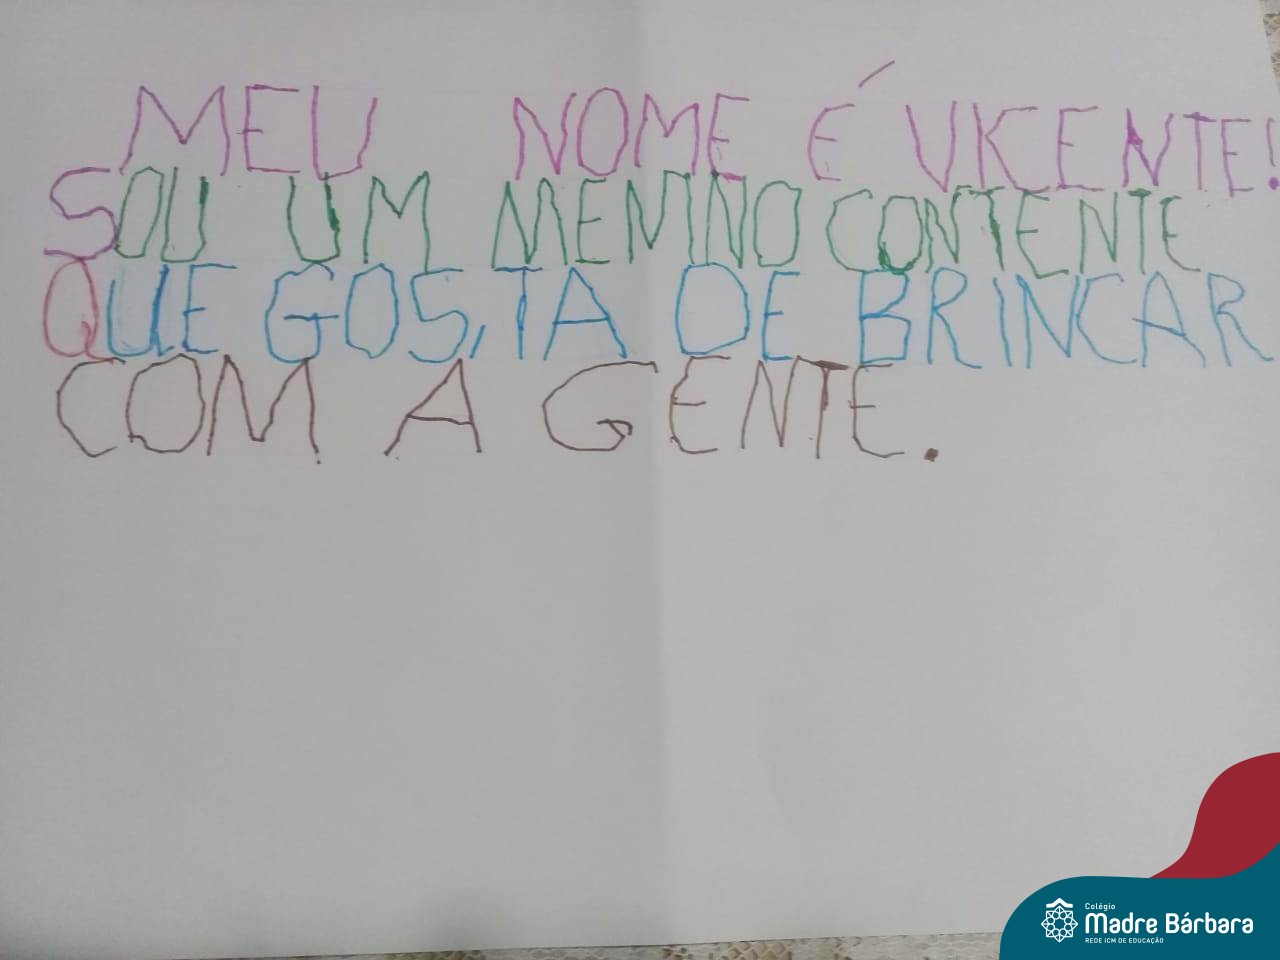 MEU NOME É VICENTE!
SOU UM MENINO CONTENTE
QUE GOSTA DE BRINCAR
COM A GENTE.
Colégio
Madre Bárbara
REDE ICM DE EDUCAÇÃO